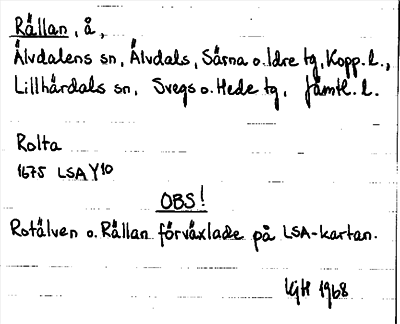 Rållan, å,
Älvdalens sn, Älvdals, Särna o. Idre tg, Kopp. l.,
Lillhärdals sn, Svegs o. Hede tg, Jämtl. l.
Rolta
1675 LSA Y10
OBS!
Rotälven o. Rållan förväxlade på LSA-kartan.
GH 1968